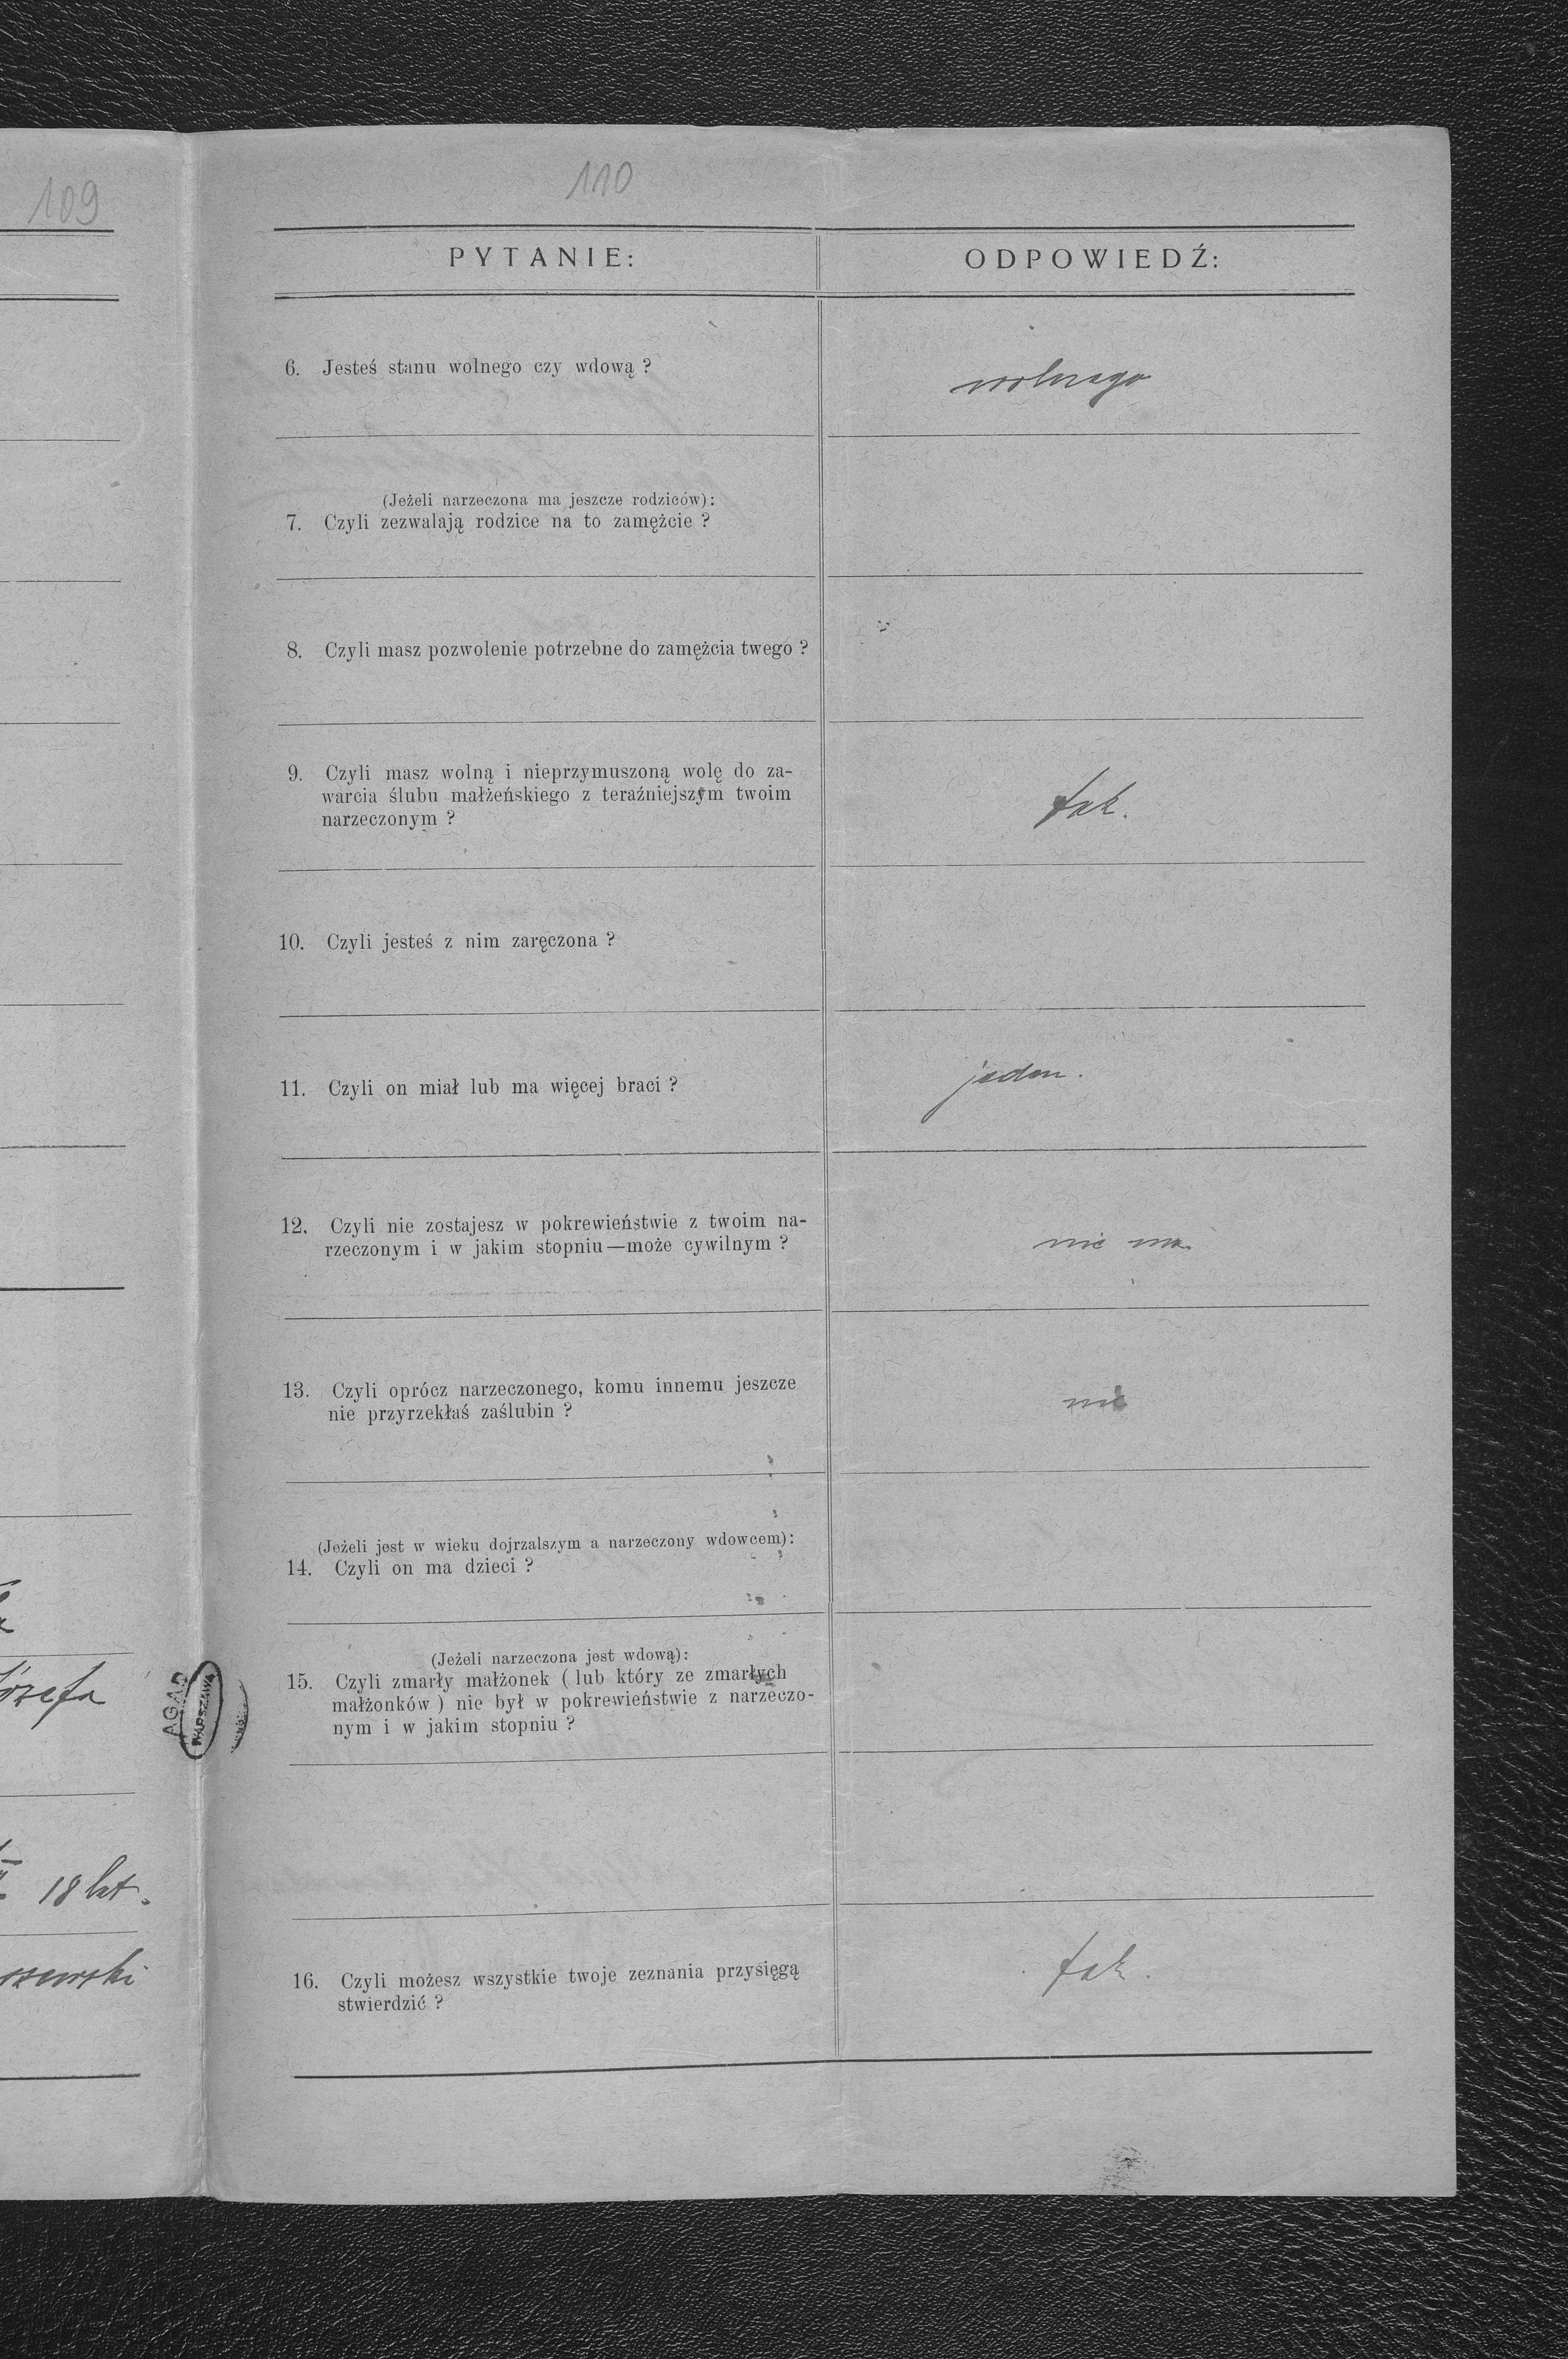 109
110
PYTANIE:
ODPOWIEDŹ:
6. Jesteś stanu wolnego czy wdową ?
wolnego
(Jeżeli narzeczona ma jeszcze rodziców):
7. Czyli zezwalają rodzice na to zamężcie ?
8. Czyli masz pozwolenie potrzebne do zamężcia twego ?
9. Czyli masz wolną i nieprzymuszoną wolę do za-
warcia ślubu małżeńskiego z teraźniejszym twoim
narzeczonym ?
tak.
10. Czyli jesteś z nim zaręczona ?
11. Czyli on miał lub ma więcej braci ?
jeden.
12. Czyli nie zostajesz w pokrewieństwie z twoim na-
rzeczonym i w jakim stopniu—może cywilnym ?
nie ma
13. Czyli oprócz narzeczonego, komu innemu jeszcze
nie przyrzekłaś zaślubin ?
nie
(Jeżeli jest w wieku dojrzalszym a narzeczony wdowcem):
14. Czyli on ma dzieci ?
(Jeżeli narzeczona jest wdową):
15. Czyli zmarły małżonek ( lub który ze zmarłych
małżonków ) nie był w pokrewieństwie z narzeczo-
nym i w jakim stopniu ?
16. Czyli możesz wszystkie twoje zeznania przysięgą
stwierdzić ?
tak.
ózefa
AGAD
WARSZAWA
18 lat.
szewski